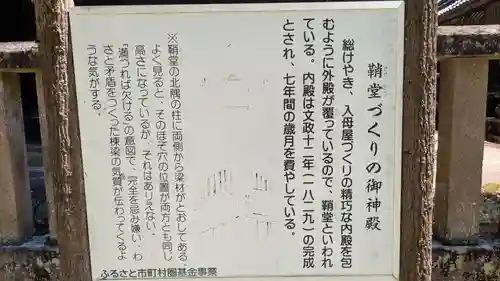 鞘堂づくりの御神殿
総けやき、入母屋づくりの精巧な内殿を包
むように外殿が覆っているので、鞘堂といわれ
ている。内殿は文政十二年(一八二九)の完成
とされ、七年間の歳月を費やしている。
※鞘堂の北隅の柱に両側から梁材がとおしてある。
よく見ると、そのほぞ穴の位置が両方とも同じ
高さになっているが、それはありえない。
「満つれば欠ける」の意図で、完全を忌み嫌い、わ
ざと矛盾をつくった棟梁の気質が伝わってくるよ
うな気がする。
ふるさと市町村圏基金事業